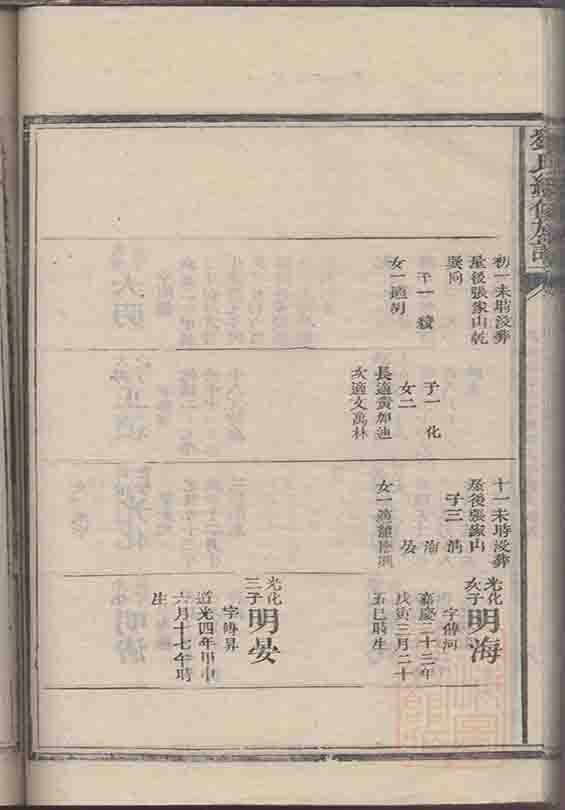 氏續修族譜
初一未時没葬
屋後張家山乾
巽向
子一
女一適胡
子一 化
女二
長適黄加廸
次適文萬林
十一未時没葬
屋後張家山
子三 清
海
晏
女一適
光化
次子
明海
字傳河
嘉慶二十三年
戊寅三月二十
五巳時生
光化
三子
明晏
字傳昇
道光四年甲申
六月十七午時
生